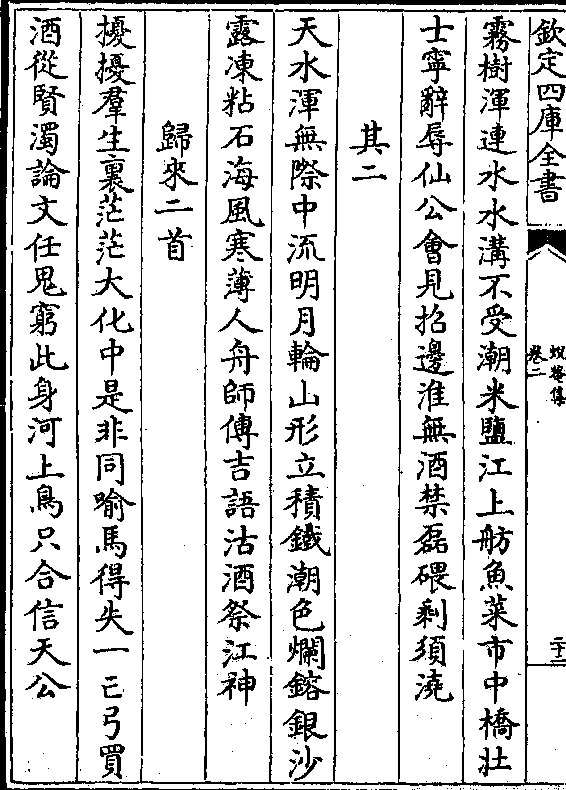 欽定四庫全書
蛻菴集
卷二
二十二
霧樹渾連水水溝不受潮米鹽江上舫魚菜市中橋壮
士寧辭辱仙公會見招邊淮無酒禁磊磈剩須澆
其二
天水渾無際中流明月輪山形立積鐵潮色爛鎔銀沙
露凍粘石海風寒薄人舟師傳吉語沽酒祭江神
歸來二首
擾擾羣生裏茫茫大化中是非同喻馬得失一亡弓買
酒從賢濁論文任鬼窮此身河上鳥只合信天公